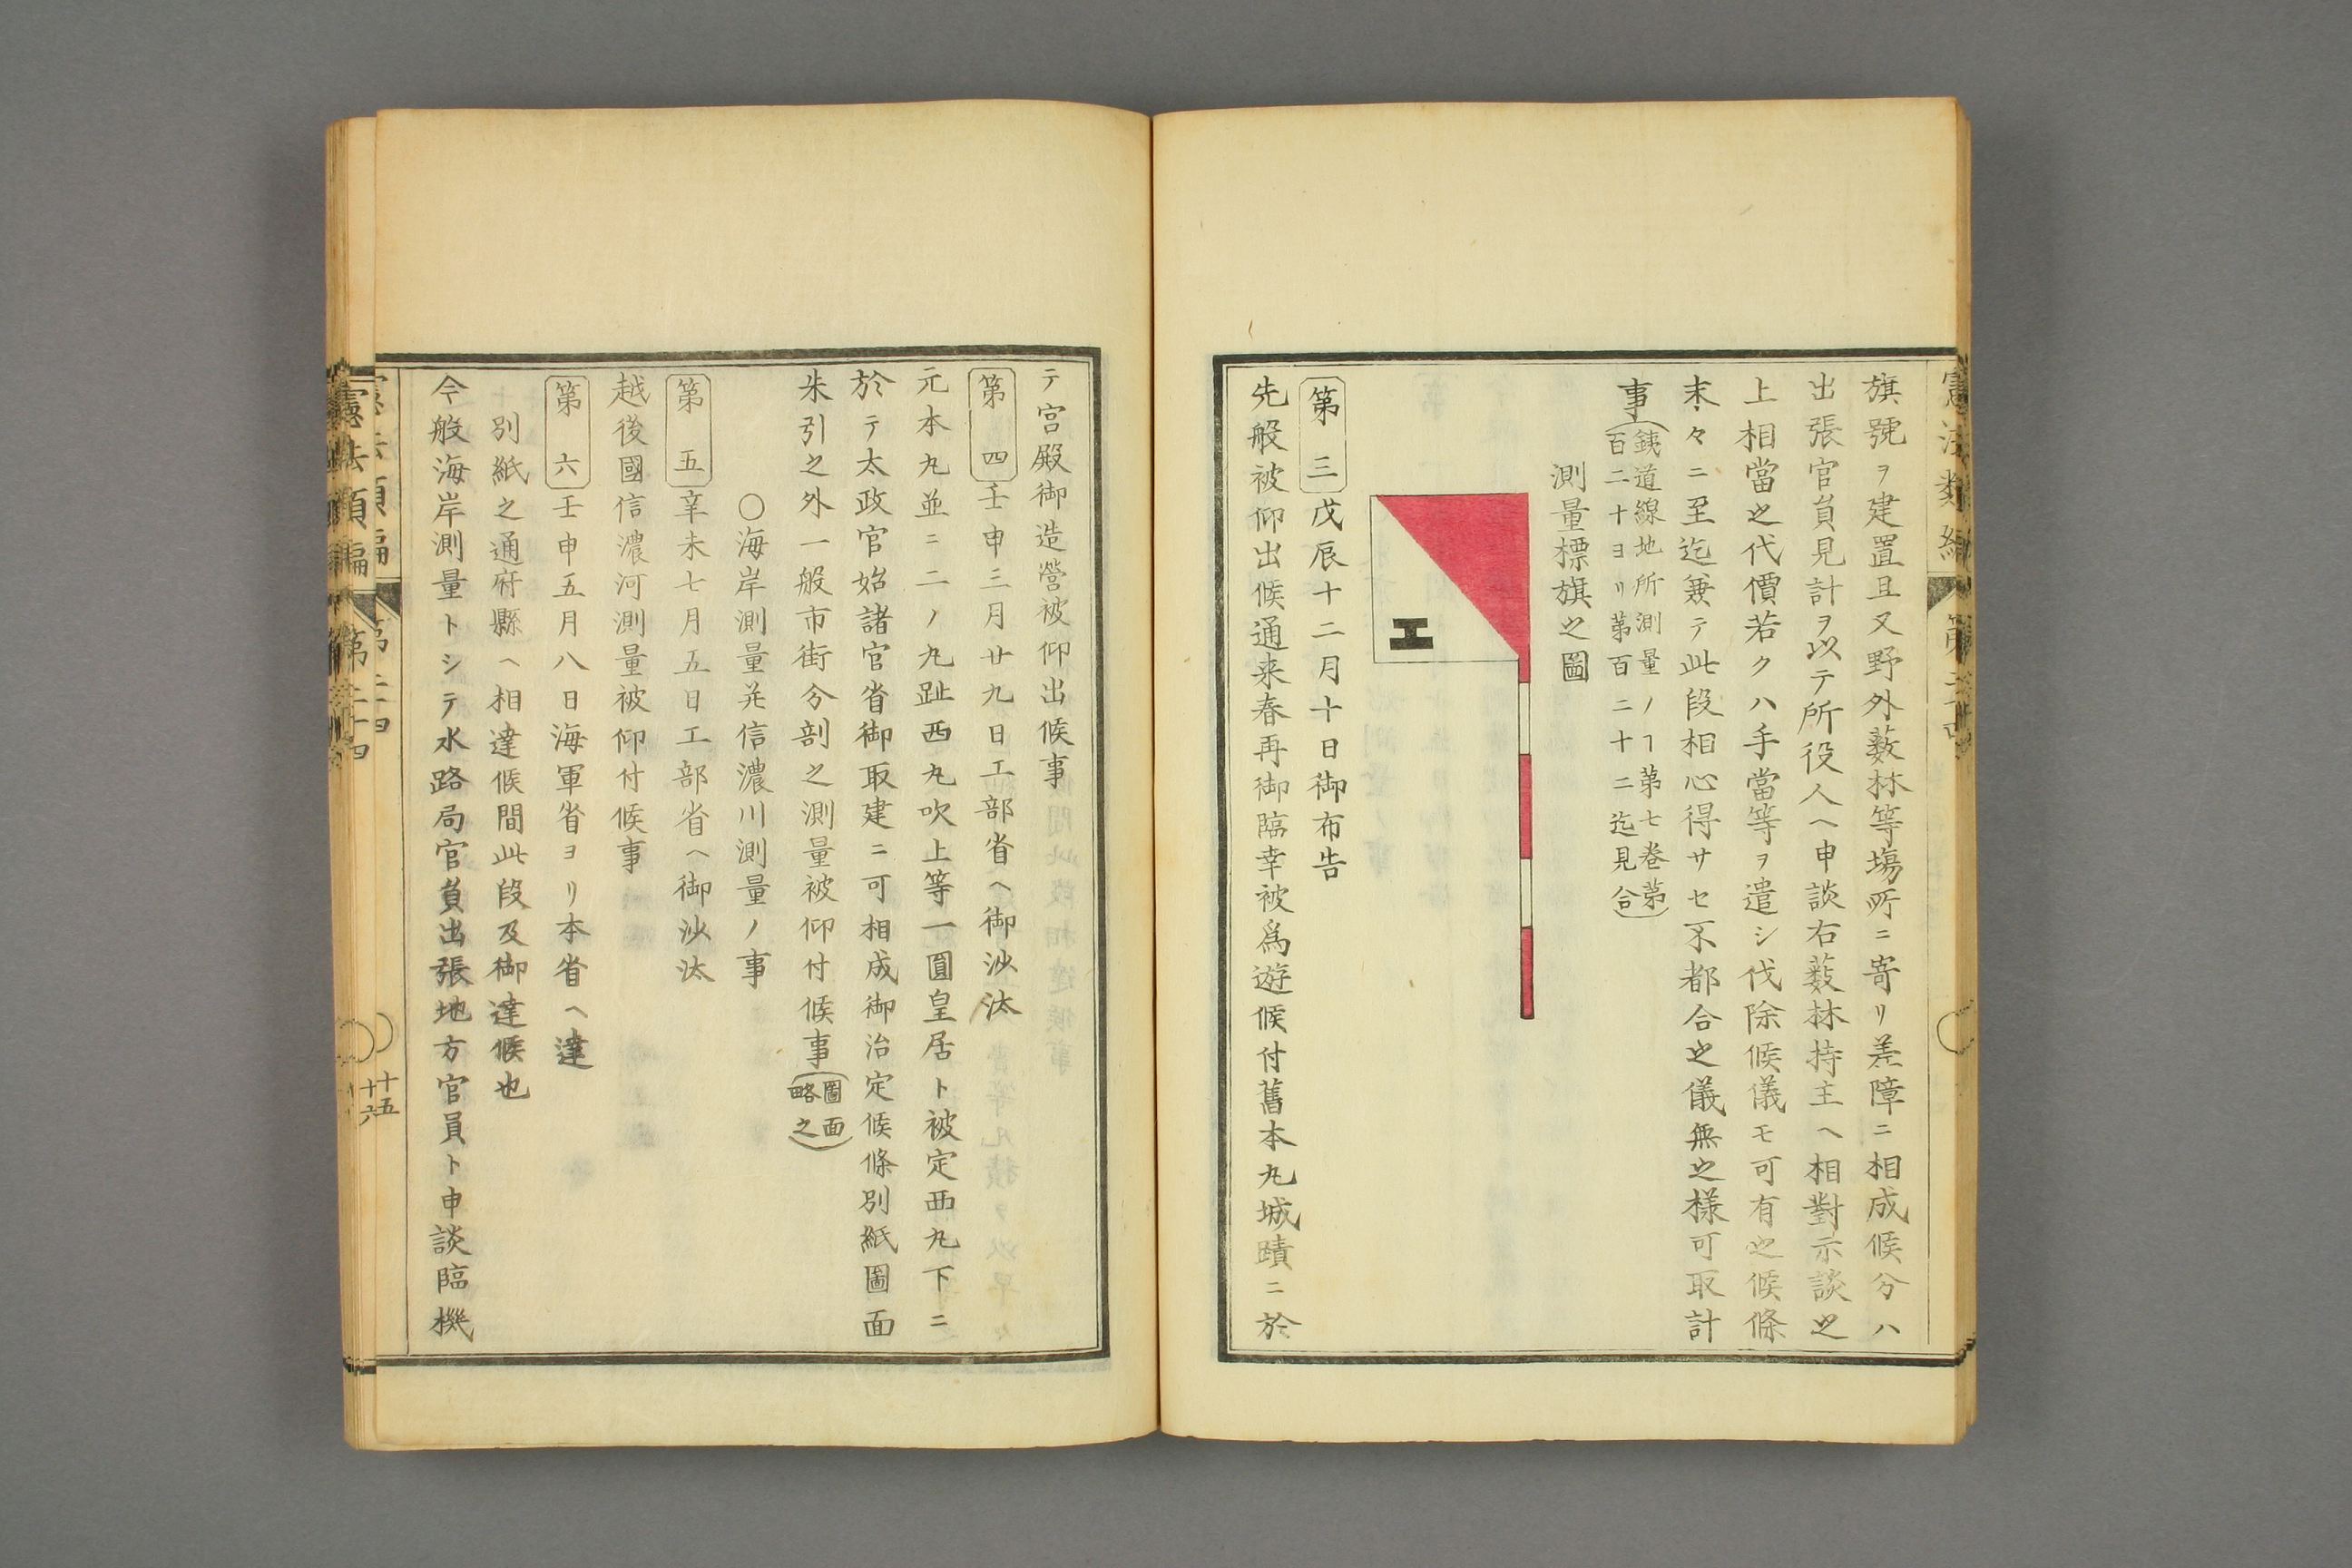 旗號ヲ建置且又野外藪林等塲所ニ寄リ差障ニ相成候分ハ
出張官負見計ヲ以テ所役人ヘ申談右藪林持主ヘ相對示談之
上相當之代價若クハ手當等ヲ遣シ伐除候儀モ可有之候條
末々ニ至迄兼テ此段相心得サセ不都合之儀無之様可取計
事
銕道線地所測量ノヿ第七巻第
百二十ヨリ第百二十二迄見合
測量標旗之圖
工
第三 戊辰十二月十日御布告
先般被仰出候通来春再御臨幸被為遊候付舊本丸城蹟ニ於
テ宮殿御造營被仰出候事
第四 壬申三月廿九日工部省ヘ御沙汰
元本丸並ニ二ノ丸趾西丸吹上等一圓皇居ト被定西丸下ニ
於テ太政官始諸官省御取建ニ可相成御治定候條別紙圖面
朱引之外一般市街分割之測量被仰付候事
圖面
略之
〇海岸測量并信濃川測量ノ事
第五 辛未七月五日工部省ヘ御沙汰
越後國信濃河測量被仰付候事
第六 壬申五月八日海軍省ヨリ本省ヘ達
別紙之通府縣ヘ相達候間此段及御達候也
今般海岸測量トシテ水路局官負出張地方官員ト申談臨機
憲法類編
第二十四
十五
十六